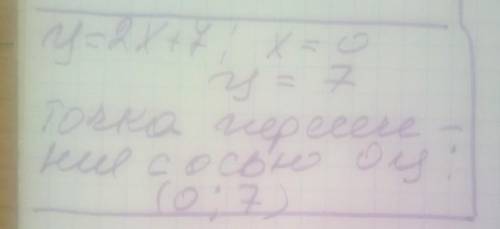 y=2x+7; x=0
y=7
точка пересече-
ния с осью Oy:
(0;7)